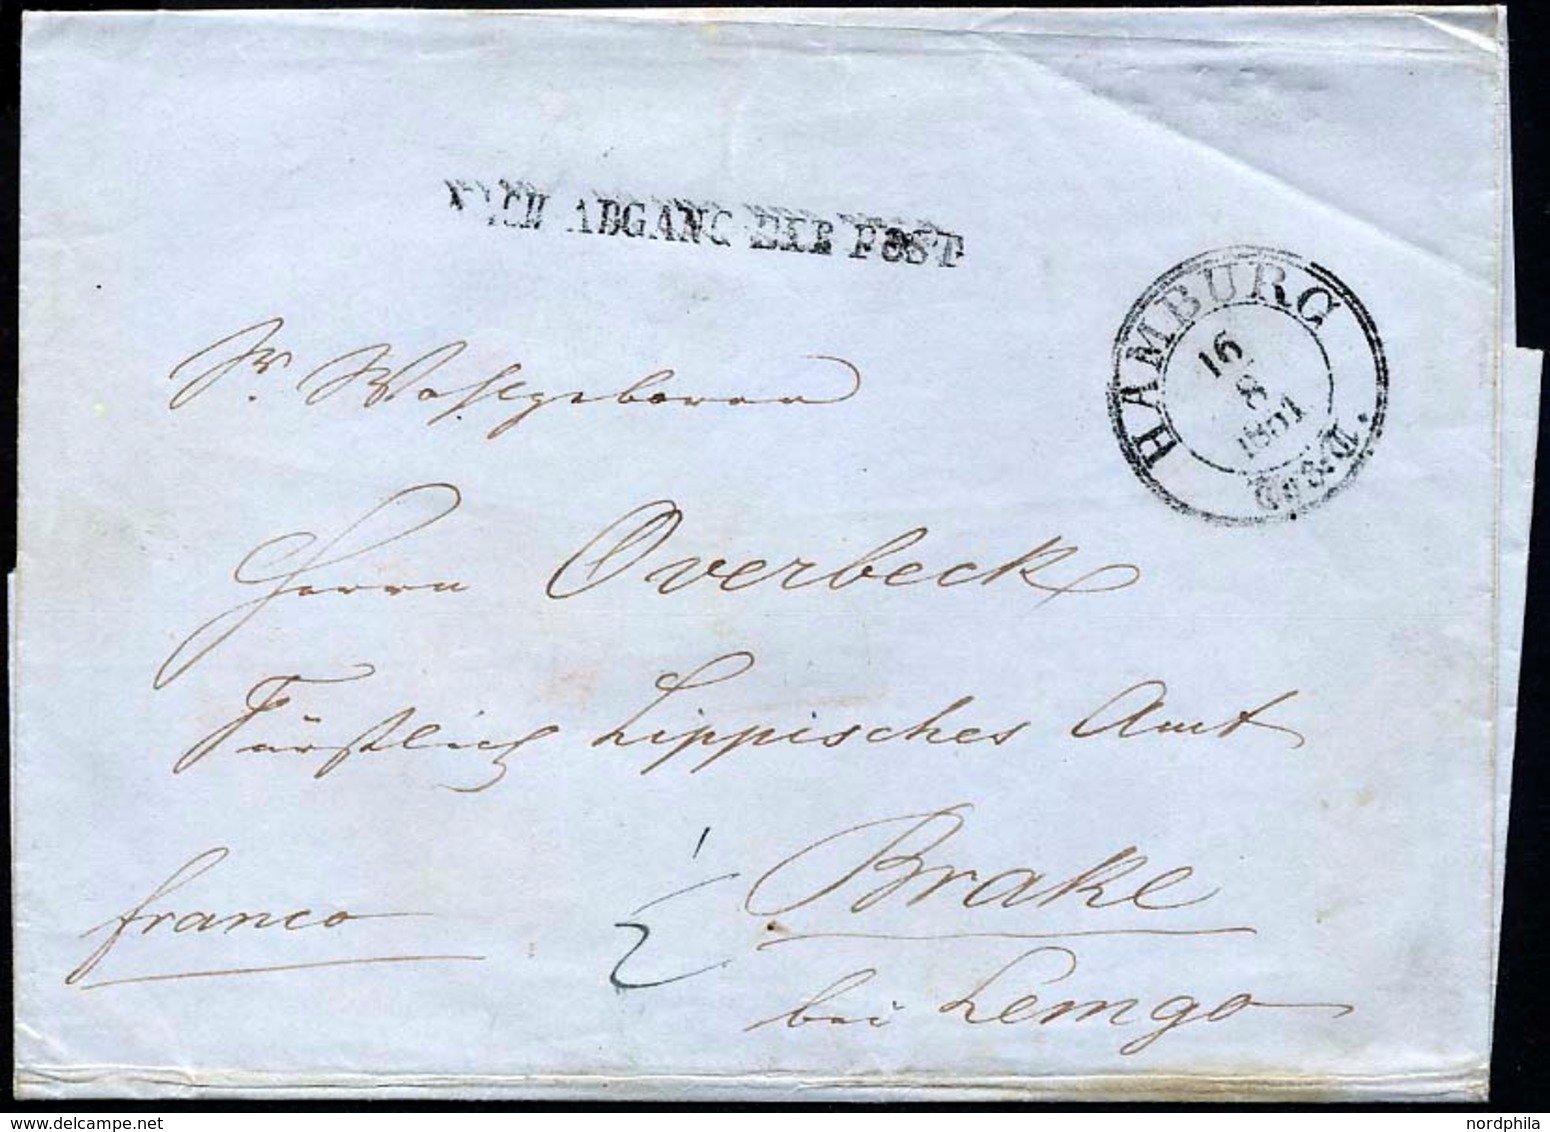 NACH ABGANG DER POST
HAMBURG
16
8
1851
Th.&T.
Sr. Wohlgeboren
Herrn Overbeck
Fürstlich Lippisches Amt
Brake
franco
bei Lemgo
nordphila
delcampe.net